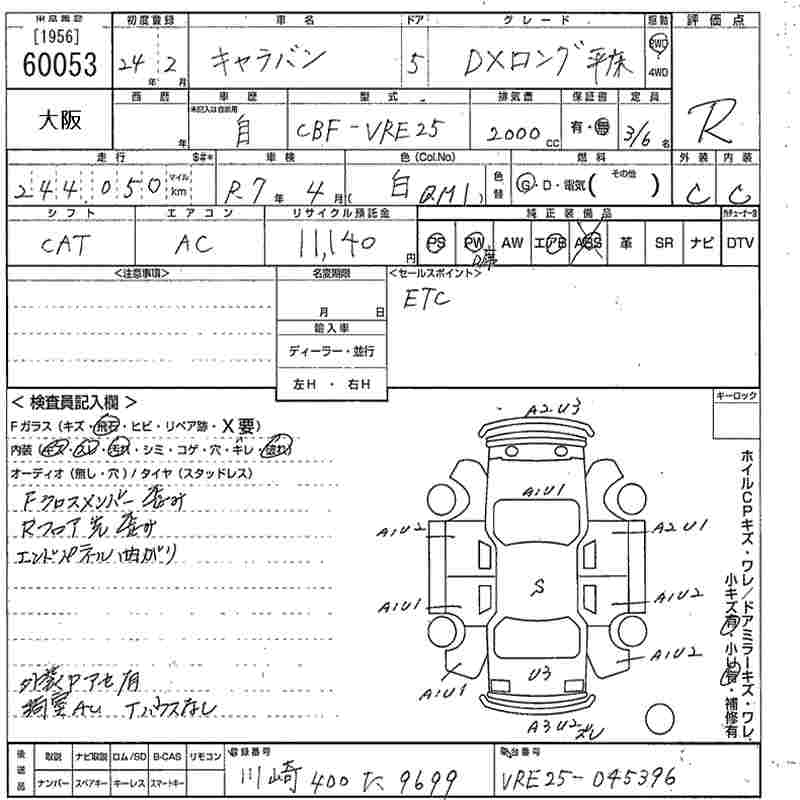 [1956]
60053
大阪
初度登録
24年 2月
車名
キャラバン
ドア
5
グレード
DXロング 平床
駆動
2WD
4WD
評価点
R
西暦
年
車歴
未記入は自家用
自
型式
CBF-VRE25
排気量
2000cc
保証書
有・無
定員
3/6名
走行
$#*
244,050
マイル
km
車検
R7年 4月
色(Col.No)
白 QM1
色替
燃料
G・D・電気( その他 )
外装 内装
C C
シフト
CAT
エアコン
AC
リサイクル預託金
11,140円
純正装備品
PS PW AW エアB ABS 革 SR ナビ DTV
<注意事項>
名変期限
月 日
輸入車
ディーラー・並行
左H ・ 右H
<セールスポイント>
ETC
< 検査員記入欄 >
Fガラス (キズ・飛石・ヒビ・リペア跡・X要)
オーディオ (無し・穴) / タイヤ (スタッドレス)
Fクロスメンバー 歪み
Rフロア 先 歪み
エンドパネル 曲がり
外装Pアセ有
荷室AU Tハウスなし
キーロック
A2U3
A1U1
A1U2
A2U1
S
A1U1
A1U2
A1U2
A1U1
U3
A3U2 ズレ
ホイルCPキズ・ワレ/ドアミラーキズ・ワレ
小キズ有・小凹有・補修有
後送品
取説 ナビ取説 ロム/SD B-CAS リモコン
ナンバー スペアキー キーレス スマートキー
登録番号
川崎 400 た 9699
車台番号
VRE25-045396